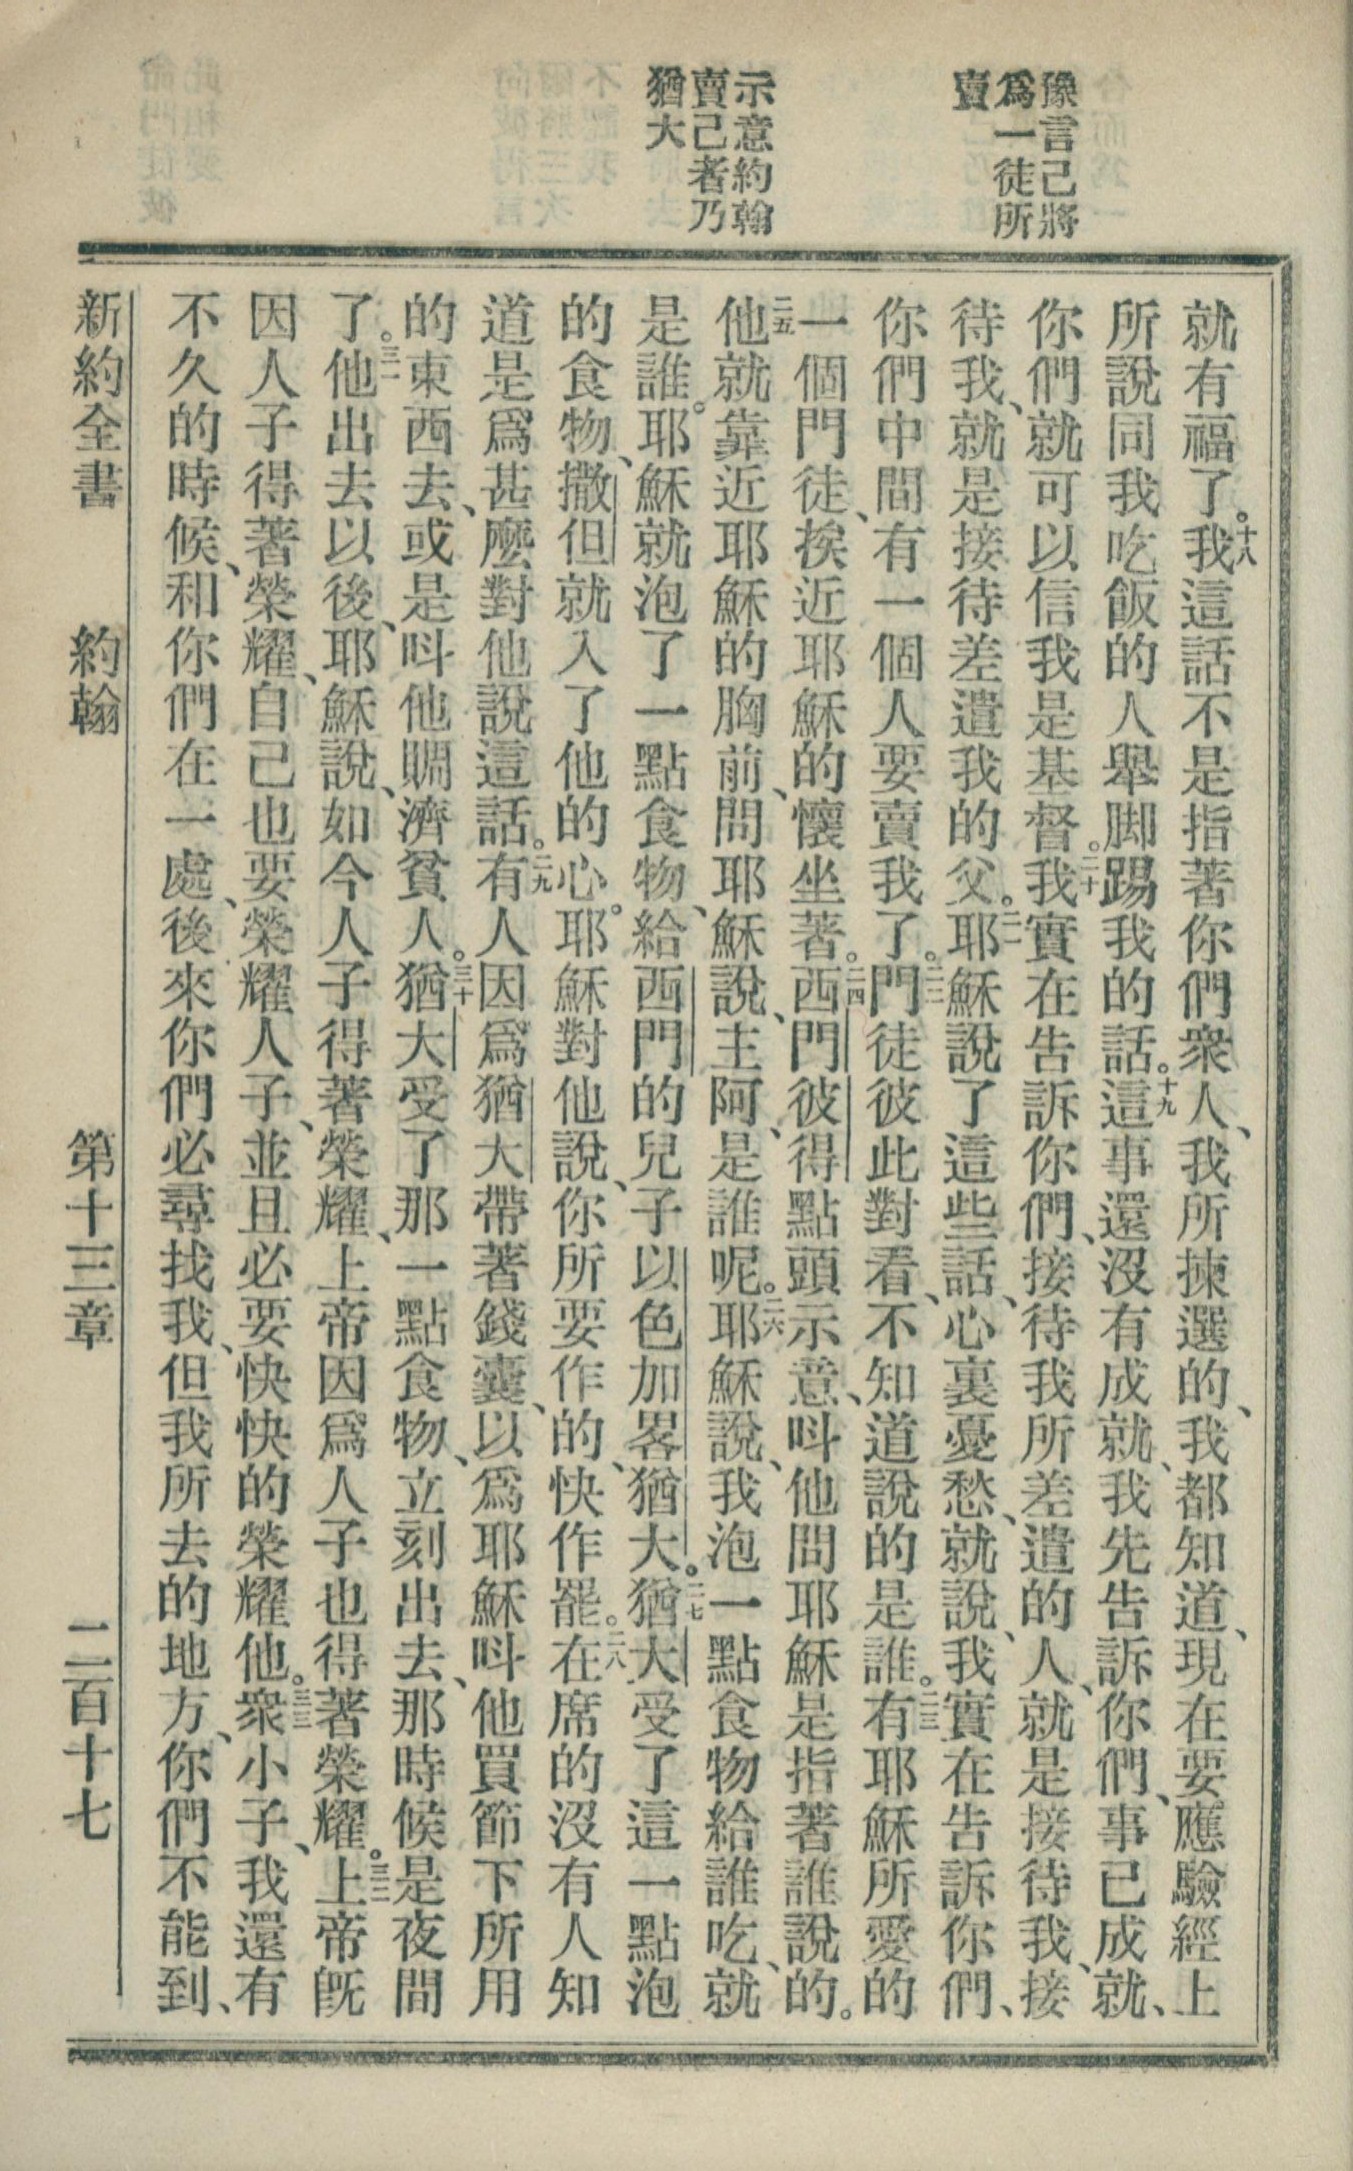 豫言己將
爲一徒所
賣
示意約翰
賣己者乃
猶大
就有福了。十八我這話不是指著你們衆人、我所揀選的、我都知道、現在要應驗經上
所說同我吃飯的人舉脚踢我的話。十九這事還沒有成就、我先告訴你們、事已成就、
你們就可以信我是基督。二十我實在告訴你們、接待我所差遣的人、就是接待我、接
待我、就是接待差遣我的父。二一耶穌說了這些話、心裏憂愁、就說、我實在告訴你們、
你們中間有一個人要賣我了。二二門徒彼此對看、不知道說的是誰。二三有耶穌所愛的
一個門徒、挨近耶穌的懷坐著。二四西門彼得點頭示意、呌他問耶穌是指著誰說的。
二五他就靠近耶穌的胸前、問耶穌說、主阿、是誰呢。二六耶穌說、我泡一點食物給誰吃、就
是誰。耶穌就泡了一點食物、給西門的兒子以色加畧猶大。二七猶大受了這一點泡
的食物、撒但就入了他的心。耶穌對他說、你所要作的、快作罷。二八在席的沒有人知
道是爲甚麼對他說這話。二九有人因爲猶大帶著錢囊、以爲耶穌呌他買節下所用
的東西去、或是呌他賙濟貧人。三十猶大受了那一點食物、立刻出去、那時候是夜間
了。三一他出去以後、耶穌說、如今人子得著榮耀、上帝因爲人子也得著榮耀。三二上帝旣
因人子得著榮耀、自己也要榮耀人子、並且必要快快的榮耀他。三三衆小子、我還有
不久的時候、和你們在一處、後來你們必尋找我、但我所去的地方、你們不能到、
新約全書 約翰 第十三章 二百十七